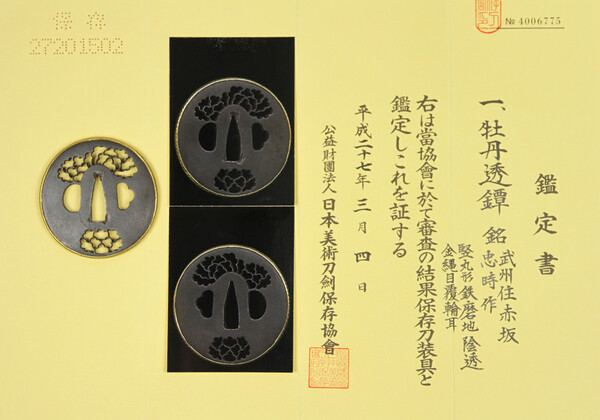 № 4006775
鑑定書
一、牡丹透鐔 銘 武州住赤坂
忠時作
竪丸形 鉄磨地 陰透
金縄目覆輪耳
右は當協會に於て審査の結果保存刀装具と
鑑定しこれを証する
平成二十七年三月四日
公益財團法人 日本美術刀劍保存協會
保存
27201502